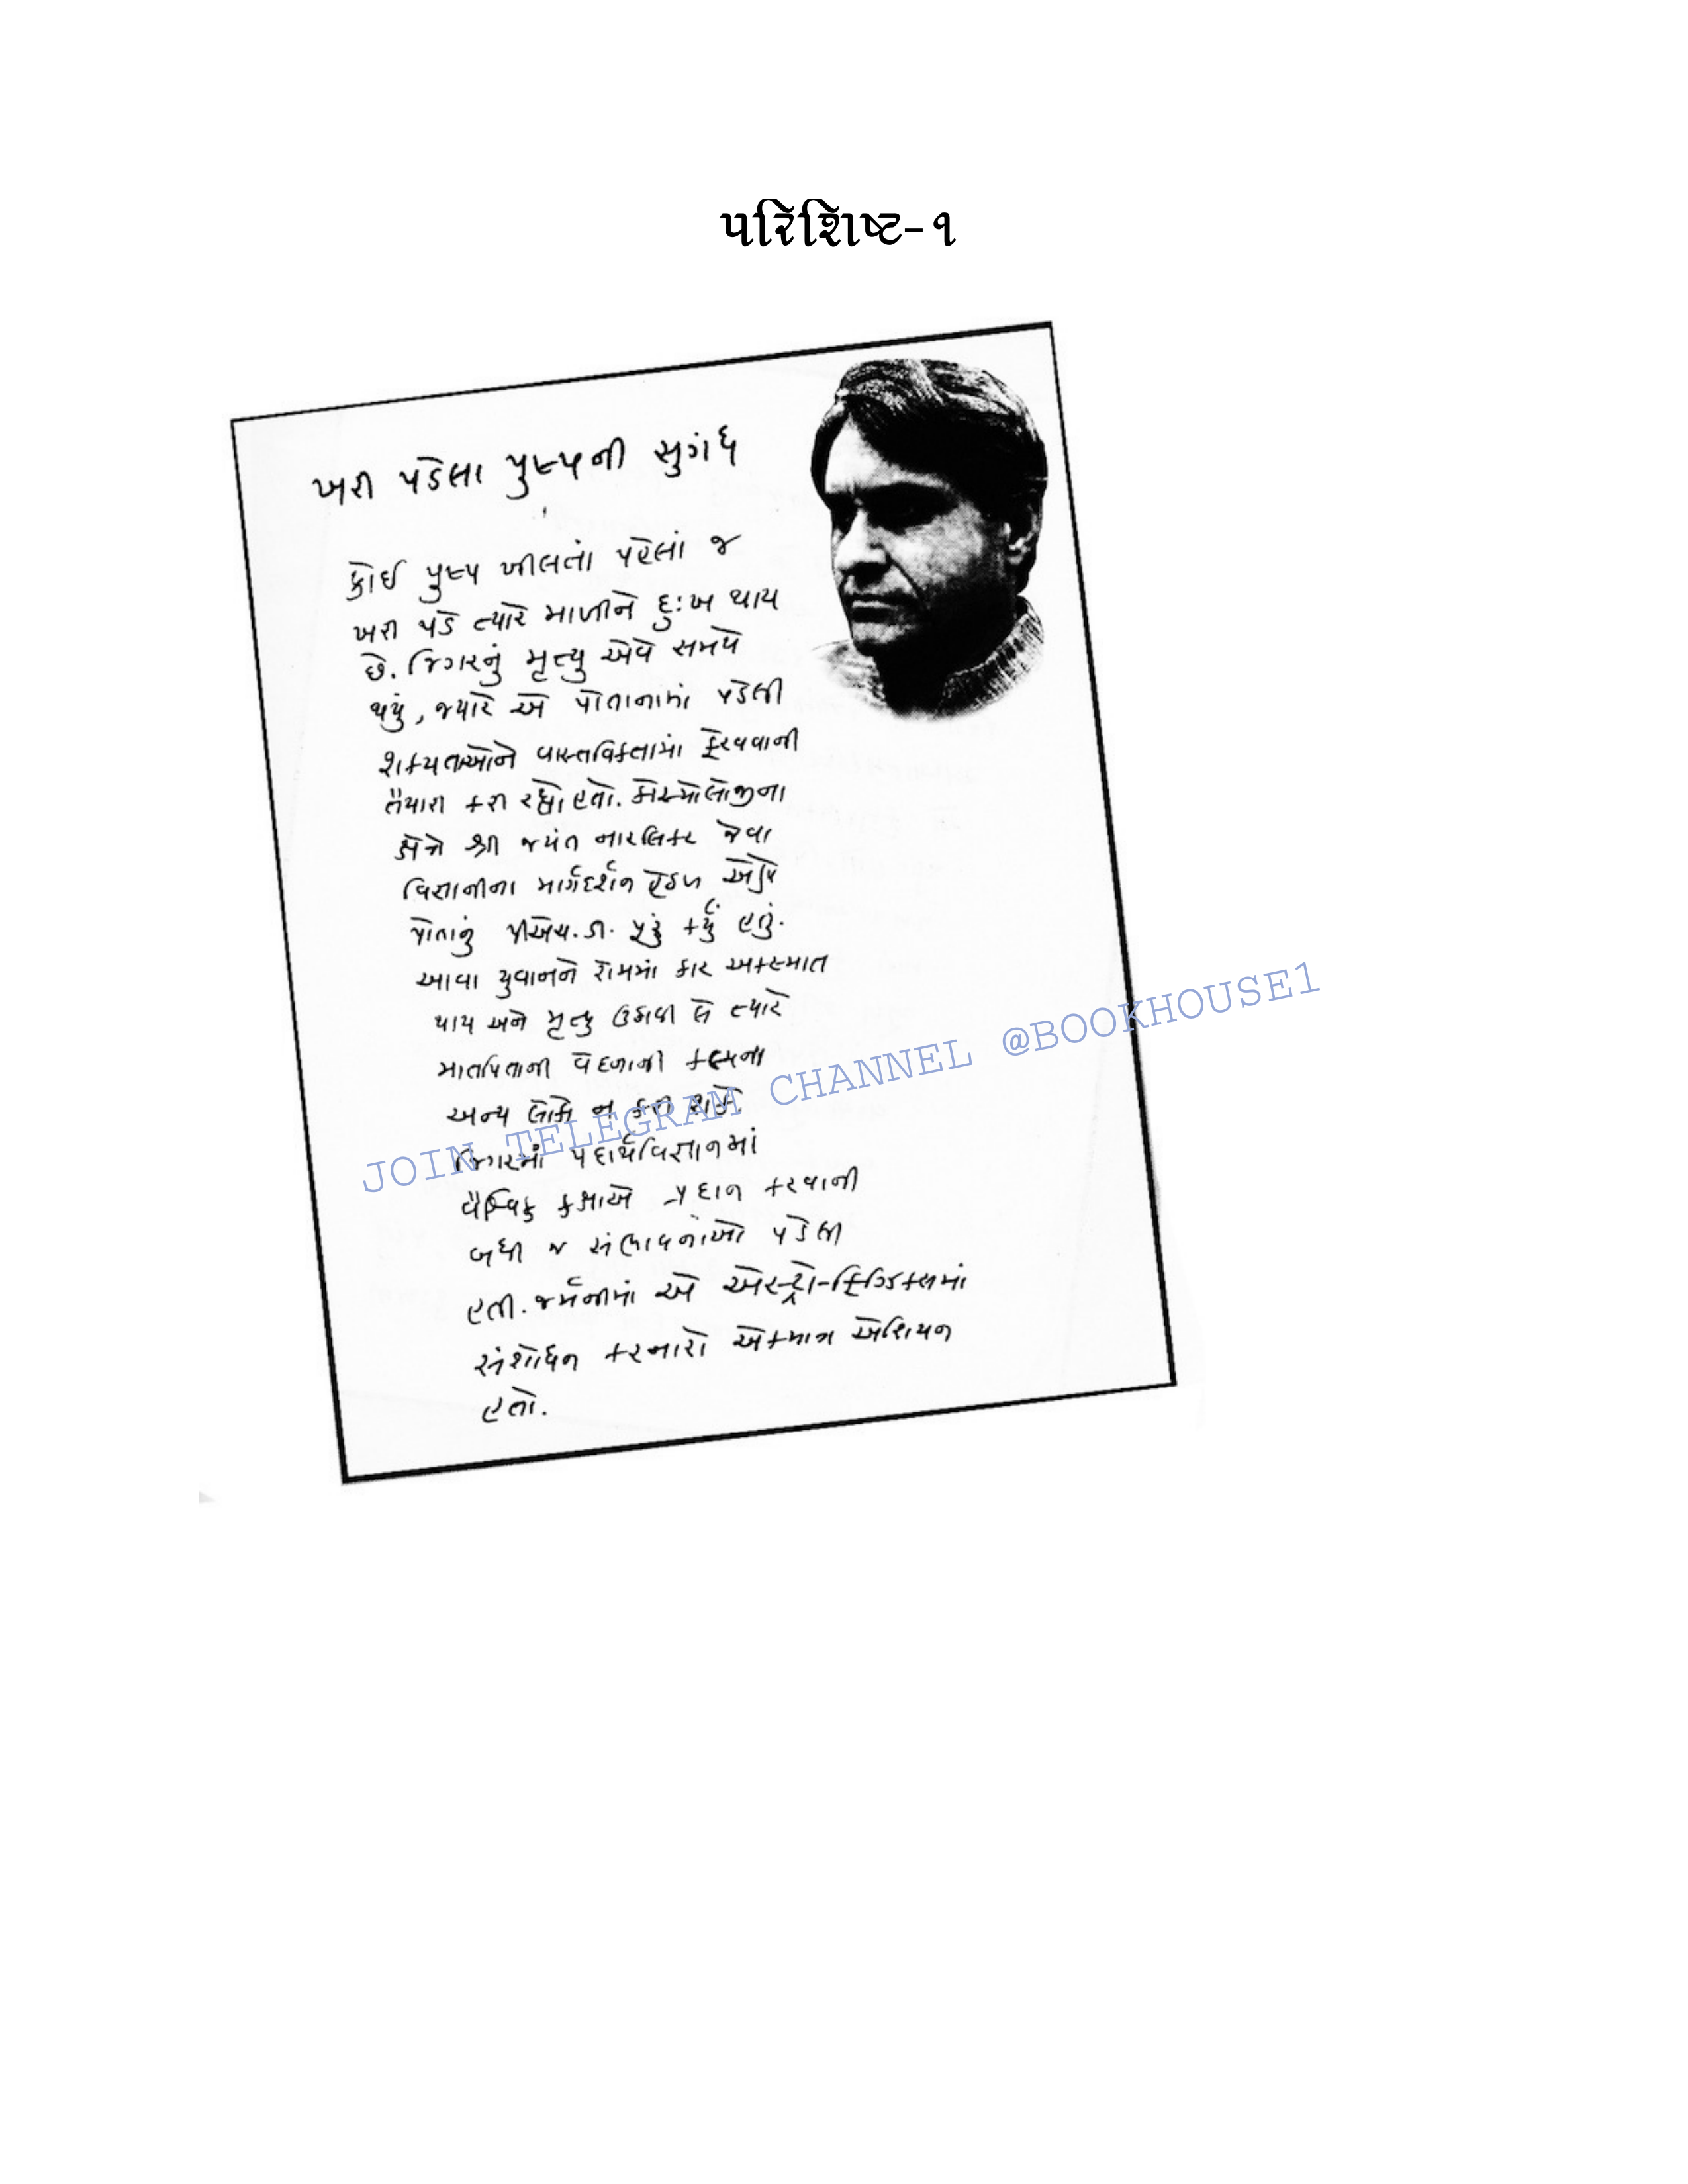 પરિશિષ્ટ-૧
ખરી પડેલા પુષ્પની સુગંધ
કોઈ પુષ્પ ખીલતાં પહેલાં જ
ખરી પડે ત્યારે માળીને દુઃખ થાય
છે. જિગરનું મૃત્યુ એવે સમયે
થયું, જ્યારે એ પોતાનામાં પડેલી
શક્યતાઓને વાસ્તવિકતામાં ફેરવવાની
તૈયારી કરી રહ્યો હતો. કોસ્મોલોજીના
ક્ષેત્રે શ્રી જયંત નારલિકર જેવા
વિજ્ઞાનીના માર્ગદર્શન હેઠળ એણે
પોતાનું પીએચ.ડી. પૂરું કર્યું હતું.
આવા યુવાનને રોમમાં કાર અકસ્માત
થાય અને મૃત્યુ ઉઠાવી લે ત્યારે
માતાપિતાની વેદનાની કલ્પના
અન્ય લોકો ન કરી શકે.
જિગરમાં પદાર્થવિજ્ઞાનમાં
વૈશ્વિક કક્ષાએ પ્રદાન કરવાની
બધી જ સંભાવનાઓ પડેલી
હતી. જર્મનીમાં એ એસ્ટ્રો-ફિઝિક્સમાં
સંશોધન કરનારો એકમાત્ર એશિયન
હતો.
JOIN TELEGRAM CHANNEL @BOOKHOUSE1